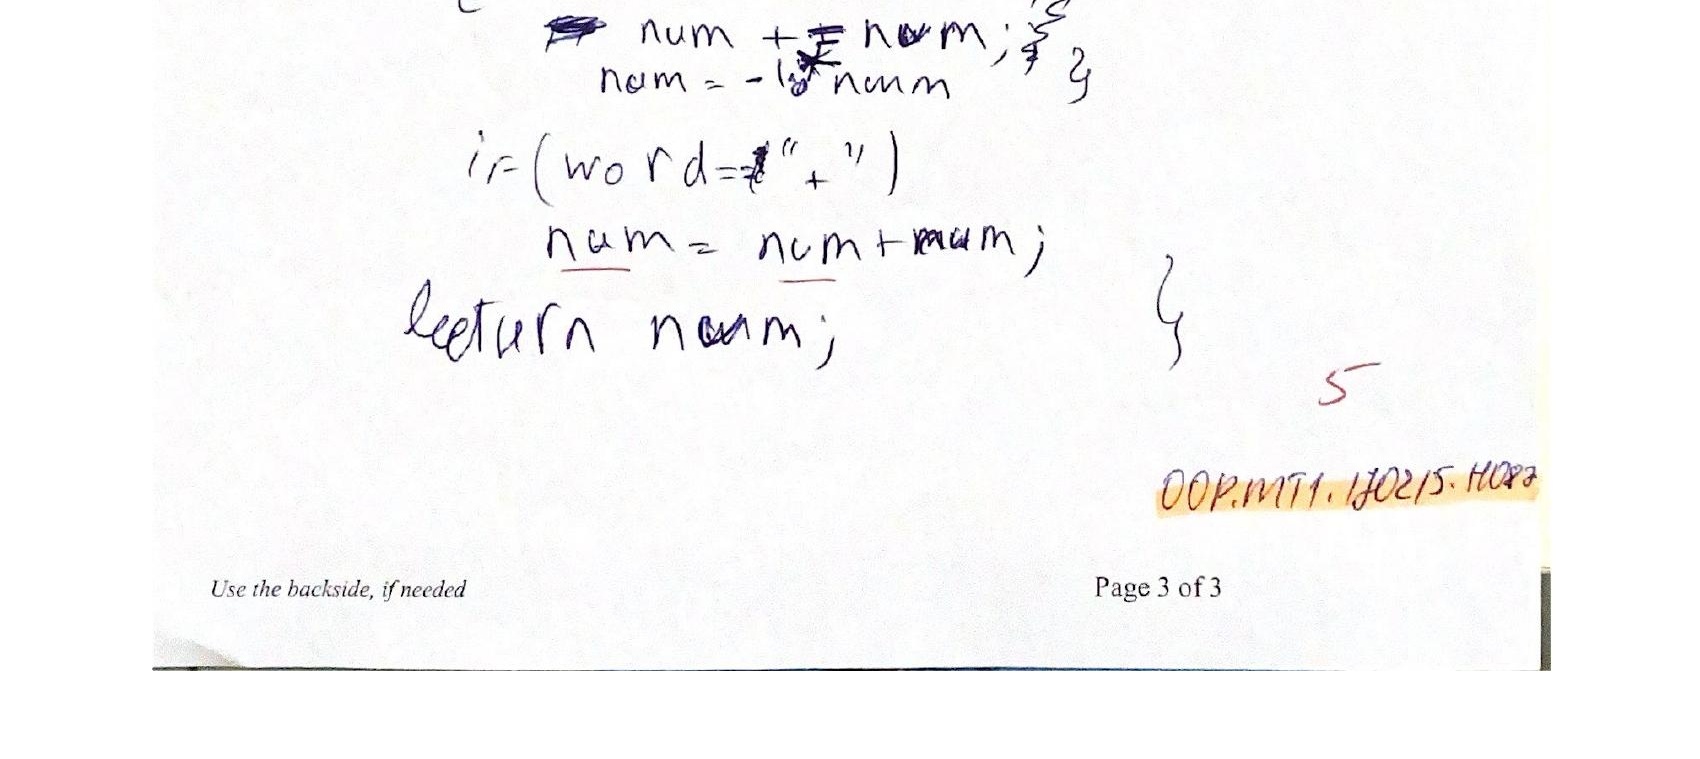 num += num; } }
num = -1 * num
if (word == "+")
num = num + num;
return num; }
5
OOP.MT1.170215.H087
Use the backside, if needed
Page 3 of 3